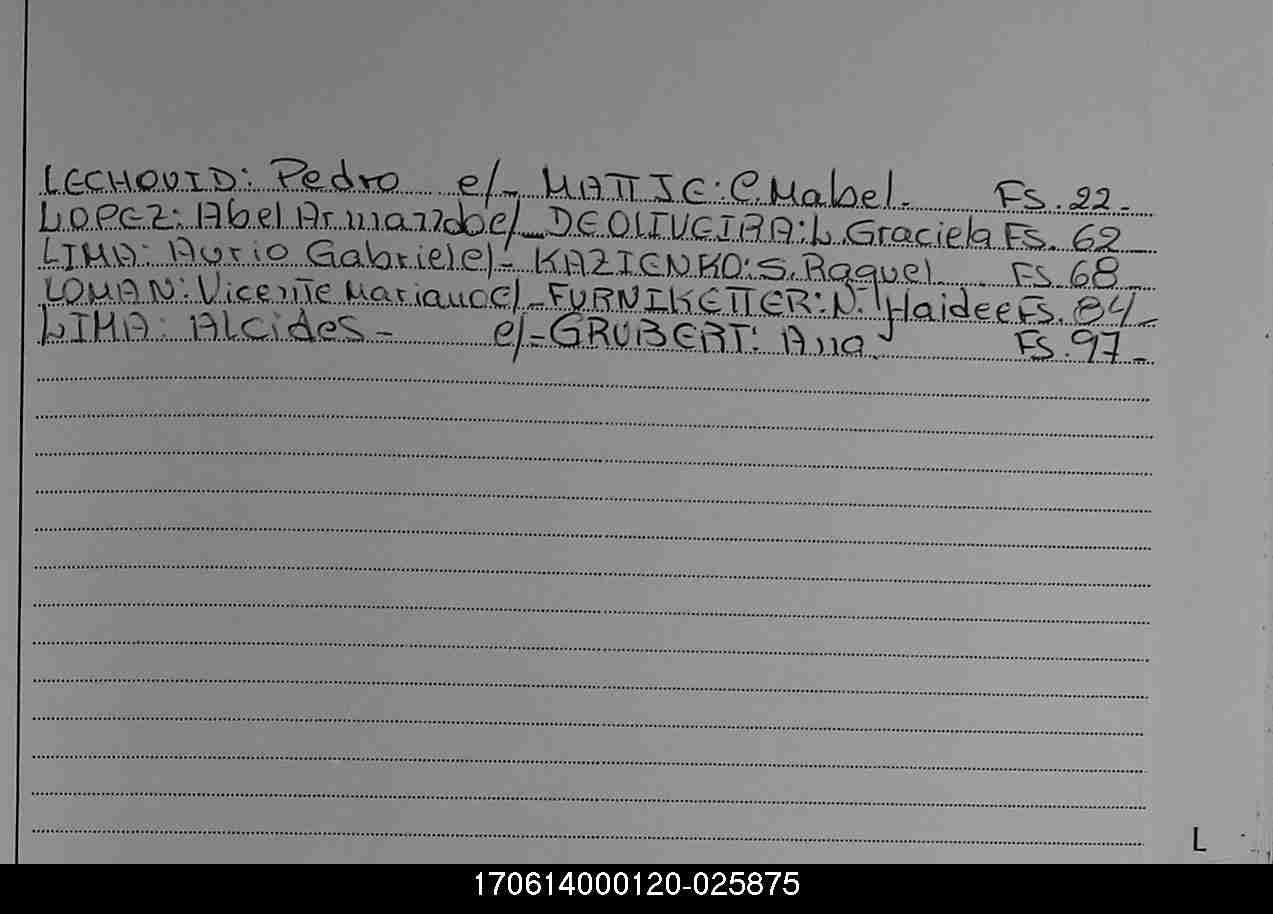 LECHOVID: Pedro e/- MATTJE: C. Mabel. FS. 22.-
LOPEZ: Abel Armando e/- DE OLIVEIRA: L. Graciela FS. 62
LIMA: Aurio Gabriel e/- KAZIENKO: S. Raquel FS. 68
LOMAN: Vicente Mariano e/- FURNIKETTER: N. Haidee FS. 84-
LIMA: Alcides - e/- GRUBERT: Ana FS. 97-
L
170614000120-025875